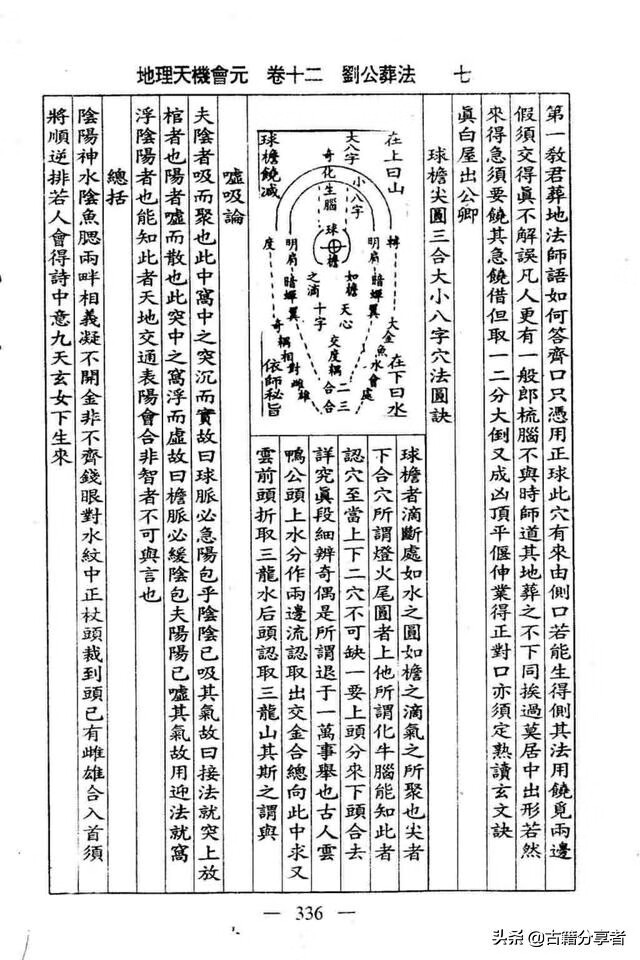 地理天機會元　卷十二　劉公葬法　　七
第一教君葬地法師語如何答齊口只憑用正球此穴有來由側口若能生得側其法用饒覓兩邊
假須交得眞不解誤凡人更有一般郎梳腦不與時師道其地葬之不下同挨過莫居中出形若然
來得急須要饒其急饒借但取一二分大倒又成凶頂平偃伸業得正對口亦須定熟讀玄文訣
眞白屋出公卿
球檐尖圓三合大小八字穴法圓訣
在上曰山
大八字
小八字
奇化生腦
球檐饒減
球
檐
轉
度
明肩
暗蟬翼
明肩
暗蟬翼
如檐
之滴
天心
十字
大金魚水會處
交度耦
奇耦相對雌雄
二三
合合
在下曰水
依師秘旨
球檐者滴斷處如水之圓如檐之滴氣之所聚也尖者
下合穴所謂燈火尾圓者上他所謂化牛腦能知此者
認穴至當上下二穴不可缺一要上頭分來下頭合去
詳究眞段細辨奇偶是所謂退于一萬事舉也古人雲
鴨公頭上水分作兩邊流認取出交金合總向此中求又
雲前頭折取三龍水后頭認取三龍山其斯之謂與
噓吸論
夫陰者吸而聚也此中窩中之突沉而實故曰球脈必急陽包乎陰陰已吸其氣故曰接法就突上放
棺者也陽者噓而散也此突中之窩浮而虛故曰檐脈必緩陰包夫陽陽已噓其氣故用迎法就窩
浮陰陽者也能知此者天地交通表陽會合非智者不可與言也
總括
陰陽神水陰魚腮兩畔相義凝不開金非不齊錢眼對水紋中正杖頭裁到頭已有雌雄合入首須
將順逆排若人會得詩中意九天玄女下生來
— 336 —
头条 @古籍分享者